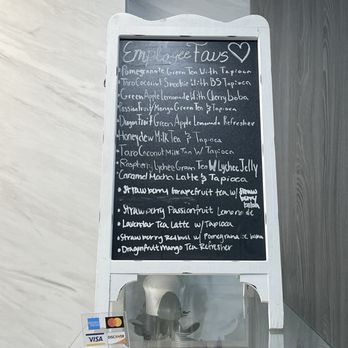 Employee Favs
• Pomegranate Green Tea With Tapioca
• Taro Coconut Smoothie With BS Tapioca
• Green Apple Lemonade With Cherry Boba
• Passionfruit Mango Green Tea & Tapioca
• Dragonfruit Green Apple Lemonade Refresher
• Honeydew Milk Tea & Tapioca
• Taro Coconut Milk Tea W Tapioca
• Raspberry Lychee Green Tea W Lychee Jelly
• Caramel Macha Latte & Tapioca
• Strawberry Grapefruit tea w/ straw
berry
boba
• Strawberry Passionfruit Lemonade
• Lavender Tea Latte w/Tapioca
• Strawberry Redbull w/ Pomegranate boba
• Dragonfruit Mango Tea Refresher
VISA
DISCOVER